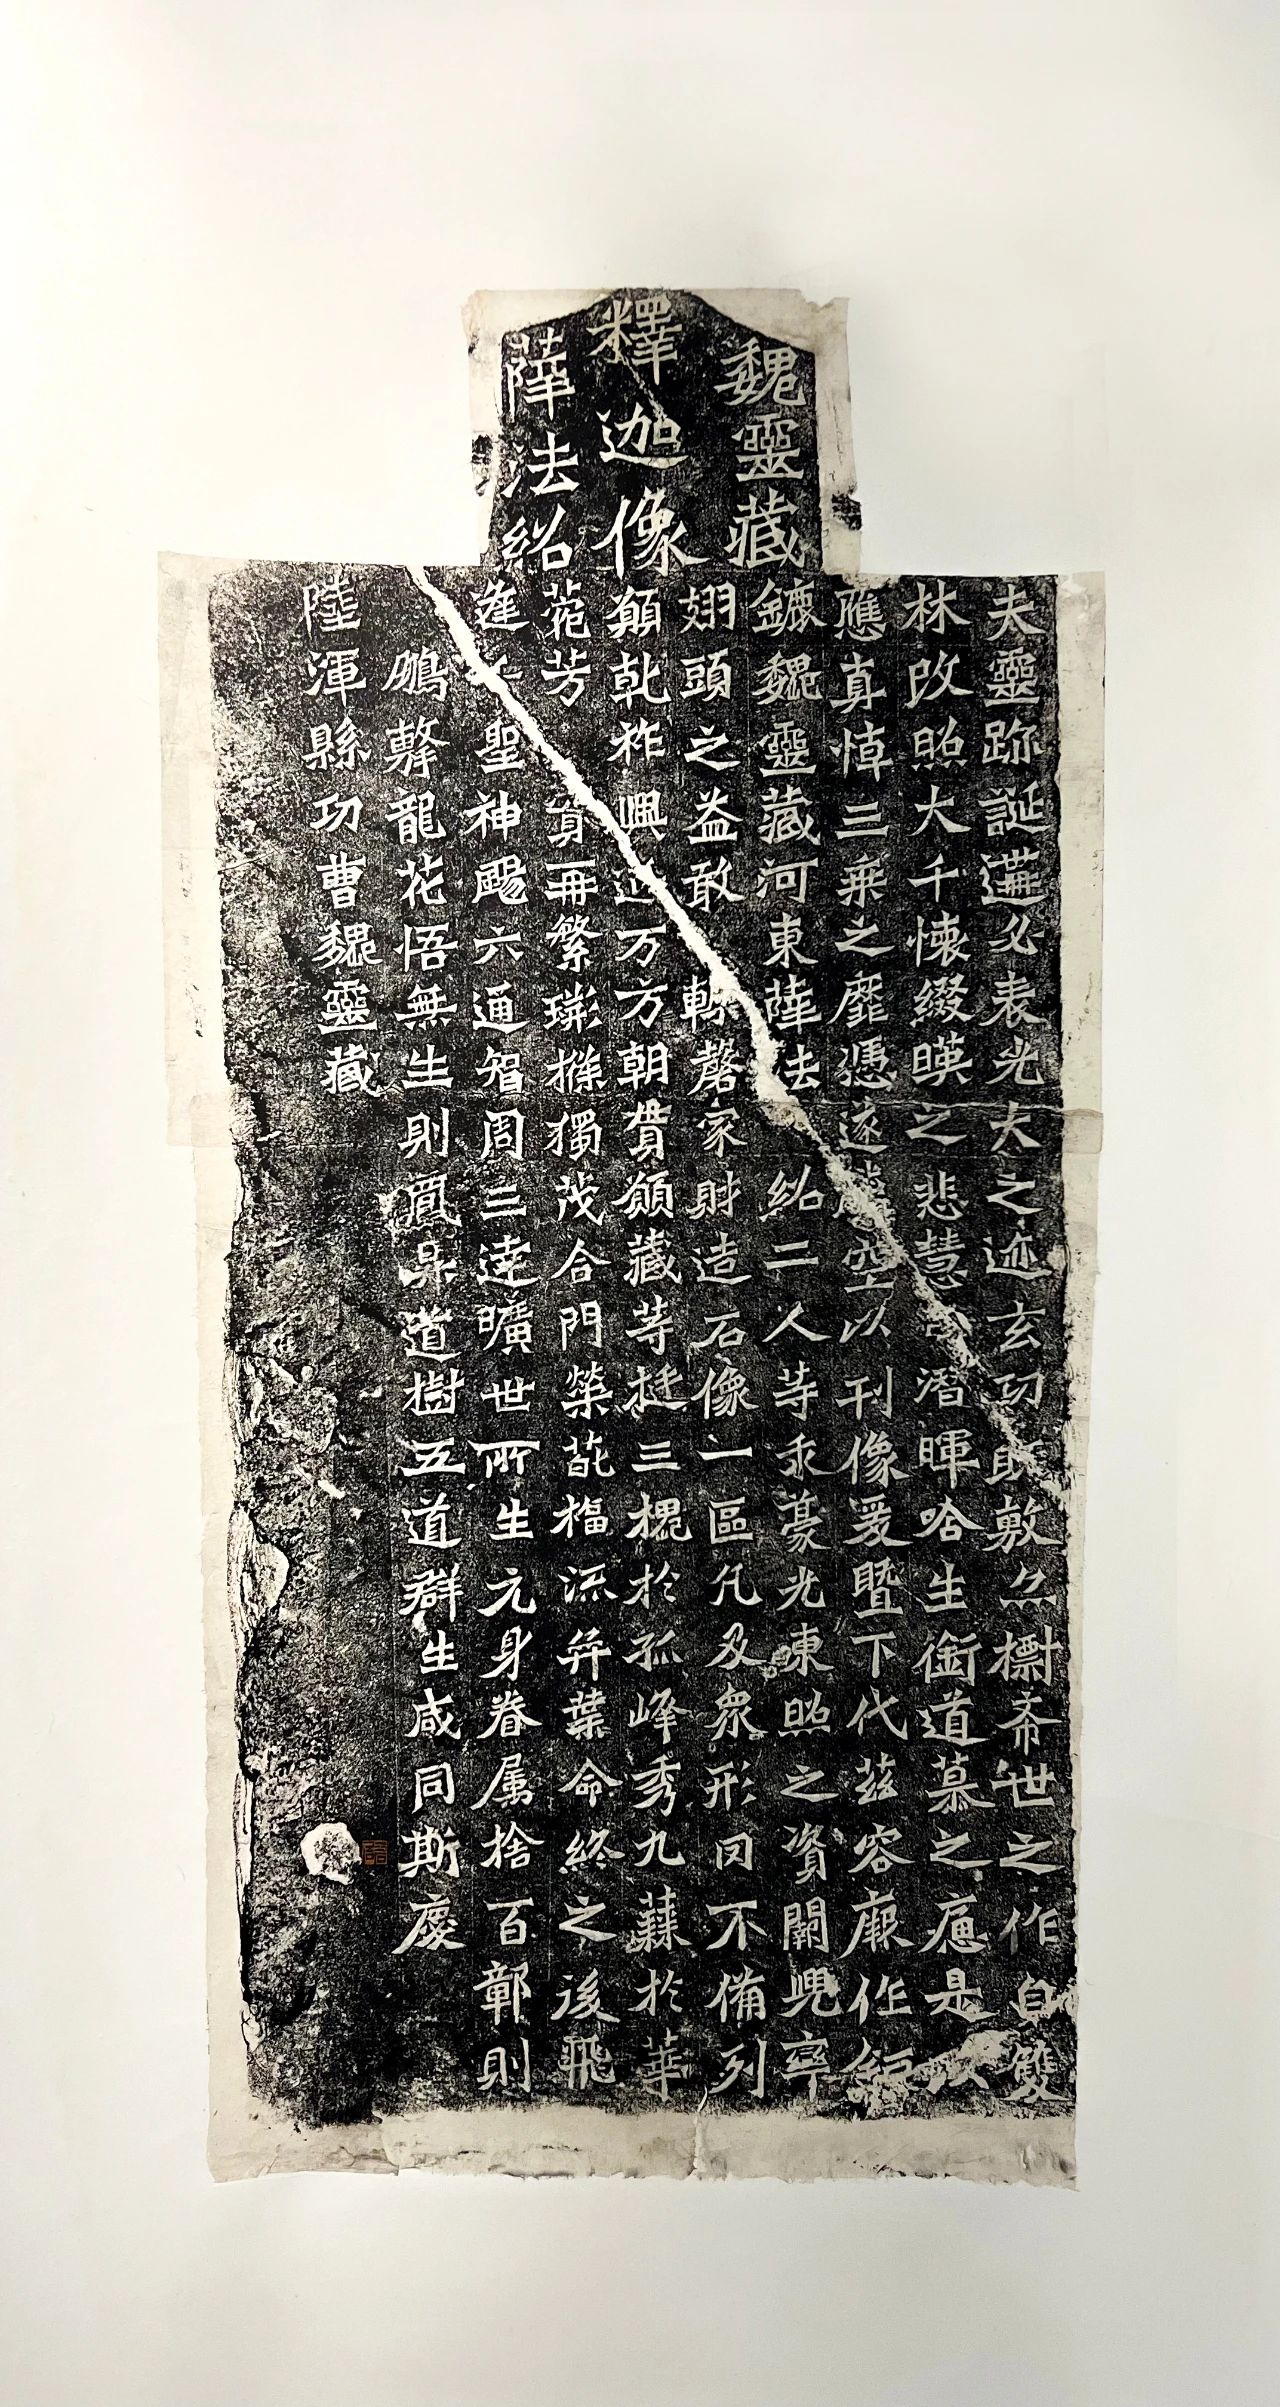 魏靈藏
釋迦像
薛法紹
夫靈跡誕遘必表光大之迹玄功既敷亦標希世之作自雙
林改照大千懷綴暎之悲慧潛暉唅生銜道慕之痛是以
應真悼三乘之靡憑遂空以刊像爰暨下代茲容厥作鉅
鏕魏靈藏河東薛法紹二人等乖豪光東照之資闕兜率
翅頭之益敢輒磬家財造石像一區凡及眾形罔不備列
願乾祚興延万方朝貫願藏等挺三槐於孤峰秀九蕀於華
菀芳實再繁荊條獨茂合門榮葩福流弈葉命終之後飛
逢聖神颺六通智周三達曠世所生元身眷属捨百鄣則
鵬擊龍花悟無生則鳳昇道樹五道群生咸同斯慶
陸渾縣功曹魏靈藏